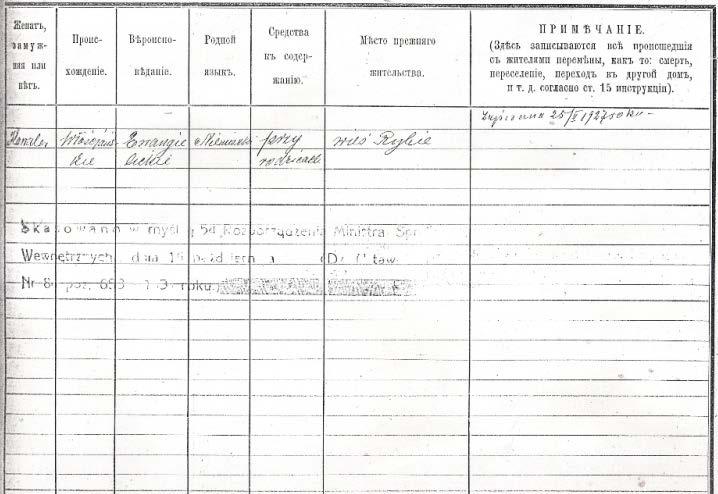 Женатъ,
замуж-
няя или
нѣтъ.
Проис-
хожденіе.
Вѣроиспо-
вѣданіе.
Родной
языкъ.
Средства
къ содер-
жанію.
Мѣсто прежняго
жительства.
ПРИМѢЧАНІЕ.
(Здѣсь записываются всѣ происшедшія
съ жителями перемѣны, какъ то: смерть,
переселеніе, переходъ въ другой домъ,
и т. д. согласно ст. 15 инструкціи).
25/ 1927 roku
Kawaler włościań Ewangie Niemiecki przy wieś Rybie
skie lickie rodzicach
Skasowano w myśl § 54 Rozporządzenia Ministra Spr
Wewnętrznych dnia
Nr 8 poz. 653 roku